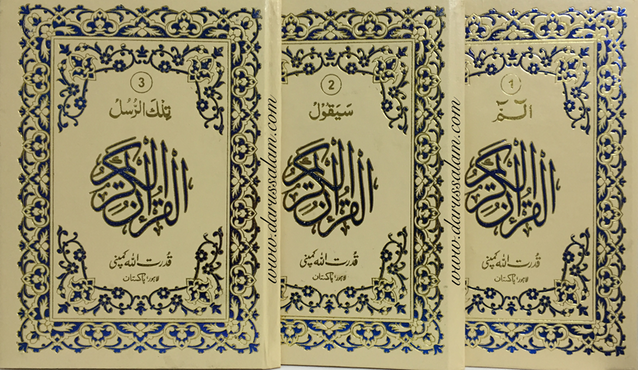 3
تِلْكَ الرُّسُلُ
القرآن الكريم
قدرت اللہ کمپنی
لاہور، پاکستان
www.darussalam.com
2
سَيَقُوْلُ
القرآن الكريم
قدرت اللہ کمپنی
لاہور، پاکستان
www.darussalam.com
1
الٓمّٓ
القرآن الكريم
قدرت اللہ کمپنی
لاہور، پاکستان